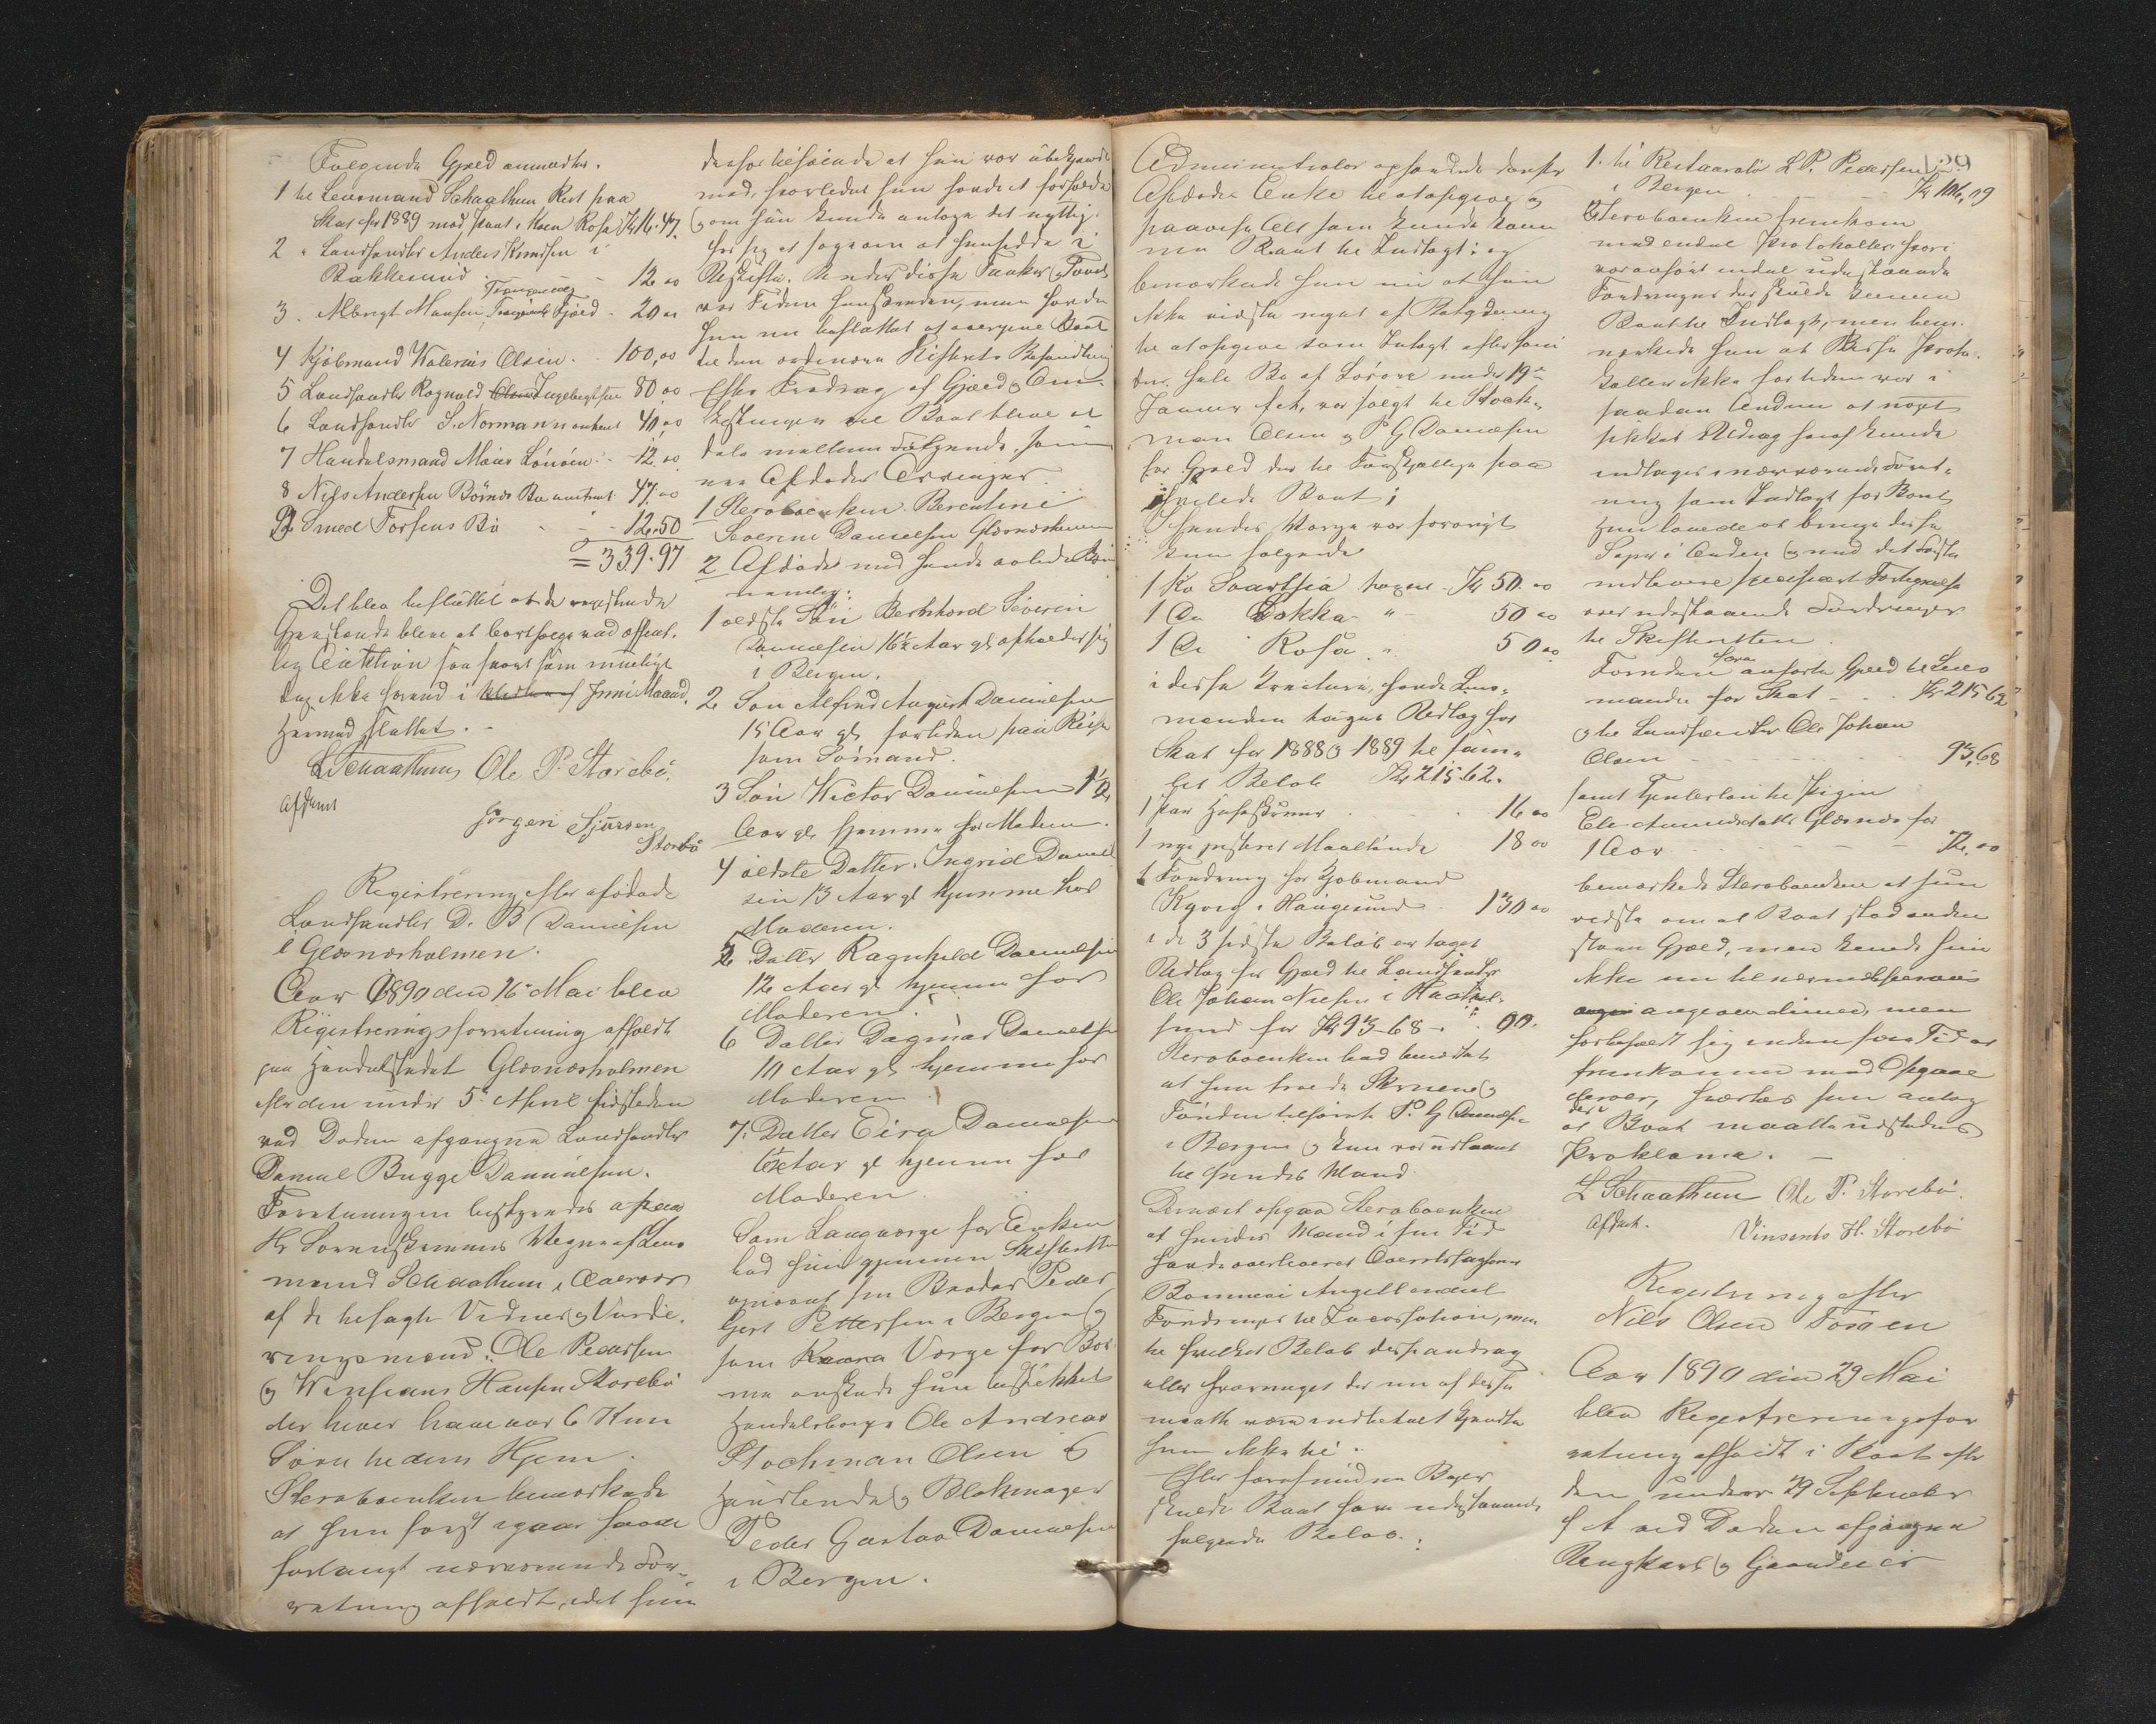 Følgende Gjæld anmældtes.
1 til Lensmand Schaathun Rest paa
Skat for 1889 med pant i Koen Rosa Kr 16.47.
2 " Landhandler Anders Knudsen i
Bakkesund - 12 00
3. Albrigt Hansen Fjæld - 20 00
4 Kjøbmand Valerius Olsen - 100,00
5 Landhandler Ragnvald Ingebrigtsen 80,00
6 Landhandler S. Normann 40,00
7 Handelsmand Møier - 12,00
8 Nils Andersen Børnes Bo 47.00
9 Smed Torsens Bo - - 12.50
= 339.97
Det blev besluttet at de
Gjenstande blive at bortsælge ved offent-
lig Auktion saa snart som muligt
dog ikke forend i Juni Maaned.
Hermed sluttet. -
L Schaathun Ole P. Storebø.
Afskrevet
Jørgen Sjursen
Storebø
Registrering efter afdøde
Landhandler D. B Danielsen
i Glesnæsholmen.
Aar 1890 den 16 Mai blev
Registreringsforretning afholdt
paa Handelsstedet Glesnæsholmen
efter den under 5 April sidstleden
ved Døden afgangne Landhandler
Daniel Bugge Danielsen.
Forretningen bestyredes af paa
Hr Sorenskriverens Vegne af Lens
mand Schaathun i Overvær
af de tilsagte Vidner og Vurde-
ringsmænd: Ole Pedersen
og Hansen Storebø
der hver have over 6 Km
til deres Hjem.
Sterboenken bemærkede
at hun først igaar havde
forlangt nærværende For-
retning afholdt, idet hun
derfor tilføiede at hun var ubekjendt
med, hvorledes hun havde at forholde
(om hun kunde antage det nyttig-
for sig at søge om at hensidde i
Uskiftet. Under disse Tanker
var Tiden henskreden, men havde
hun nu besluttet at overgive Boet
til den ordinære Skifterets Behandling
Efter Fradrag af Gjæld og Om-
kostninger vil Boet blive at
dele mellem Følgende som
ere Afdødes Arvinger.
1 Sterboenken Berentine
Severine Danielsen Glesnæsholmen
2 Afdødes med hende avlede Børn
nemlig:
1 ældste Søn Bernhard Severin
Danielsen 16½ Aar gl. opholder sig
i Bergen.
2 Søn Alfred August Danielsen
15 Aar gl. fortiden paa Reise
som Sømand.
3 Søn Victor Danielsen 1½
Aar gl. hjemme hos Moderen.
4 ældste Datter, Ingrid Daniel
sen 13 Aar gl hjemme hos
Moderen.
5 Datter Ragnhild Danielsen
12 Aar gl hjemme hos
Moderen.
6 Datter Dagmar Danielsen
10 Aar gl. hjemme hos
Moderen.
7. Datter Eira Danielsen
Aar gl hjemme hos
Moderen.
Som Laugværge for Enken
bad hun gjennem Skifteretten
opnævnt sin Broder Peder
Gert Pettersen i Bergen og
som Værge for Bør-
nene ønskede hun beskikket
Handelsborger Ole Andreas
Stochman Olsen i
Haustenda og Blokmager
Peder Gustav Danielsen
i Bergen.
Administrator opfordrede derefter
Afdødes Enke til at opgive og
paavise Alt som kunde kom
me Boet til Indtægt; og
bemærkede hun nu at hun
ikke vidste noget af Betydning
til at opgive som Indtægt eftersom
den hele Bo af Løsøre under 19de
Januar f.A. var solgt til Stock-
man Olsen og P G Danielsen
for Gjæld der til Forskjellige paa
hvilede Boet;
I hendes Værge var forøvrigt
kun følgende
1 Ko Svartsia taxeret Kr 50.00
1 Do Dokka " 50 00
1 Do Rosa " 50 00
i disse Kreature havde Lens-
manden taget Udlæg for
Skat for 1888 og 1889 til sam-
let Beløb Kr 215.62.
1 par - 16 00
1 nye Maaltønde 18 00
1 Fordring hos Kjøbmand
i Haugesund 130 00
i de 3 sidste Beløb er taget
Udlæg for Gjæld til Landhandler
Ole Johan Nilsen i
sund for Kr 93.68 - 00.
Sterboenken bad bemærket
at hun troede
Tønden tilhørte P. G Danielsen
i Bergen og kun var udlaant
til hendes Mand.
Dernæst opgav Sterboenken
at hendes Mand i sin Tid
havde overleveret Overretssagfører
Angell endeel
Fordringer til Incassation, men
til hvilket Beløb disse androg
eller hvormeget der nu af disse
maatte være indbetalt kjendte
hun ikke til.
Efter forefundne Bøger
skulde Boet have udestaaende
følgende Beløb:
139
1. hos Restauratør L P. Pedersen
i Bergen - Kr 106,19
Sterboenken fremkom
med endeel Protokoller hvori
var anført endeel udestaaende
Fordringer der skulde komme
Boet til Indtægt, men bem-
ærkede hun at disse Proto-
koller ikke fortiden var i
saadan Orden at noget
sikkert Uddrag heraf kunde
indtages i nærværende Forret-
ning som Indtægt for Boet
Hun lovede at bringe disse
Sager i Orden og med det første
indlevere specificeret Fortegnelse
over udestaaende Fordringer
til Skifteretten.
Foruden foran anførte Gjæld til Lens
manden for Skat - - Kr 215 62
og til Landhandler Ole Johan
Olsen - - - 93,68
samt Tjenesteløn til Pigen
Glesnes for
1 Aar - - - 72,00
bemærkede Sterboenken at hun
vidste om at Boet stod anden
stoer Gjæld, men kunde hun
ikke nu tilnærmelsesvis
angive denne, men
forbeholdt sig inden sin Tid at
fremkomme med Opgave
derover, hvorhos hun antog
at der i Boet maatte udstedes
Proklama. -
L Schaathun Ole P. Storebø.
Afskrevet. Vinsents H. Storebø
Registrering efter
Nils Olsen
Aar 1890 den 29 Mai
blev Registreringsfor
retning afholdt i Boet efter
den under 29 September
f A ved Døden afgangne
Ungkarl og Gaardeier